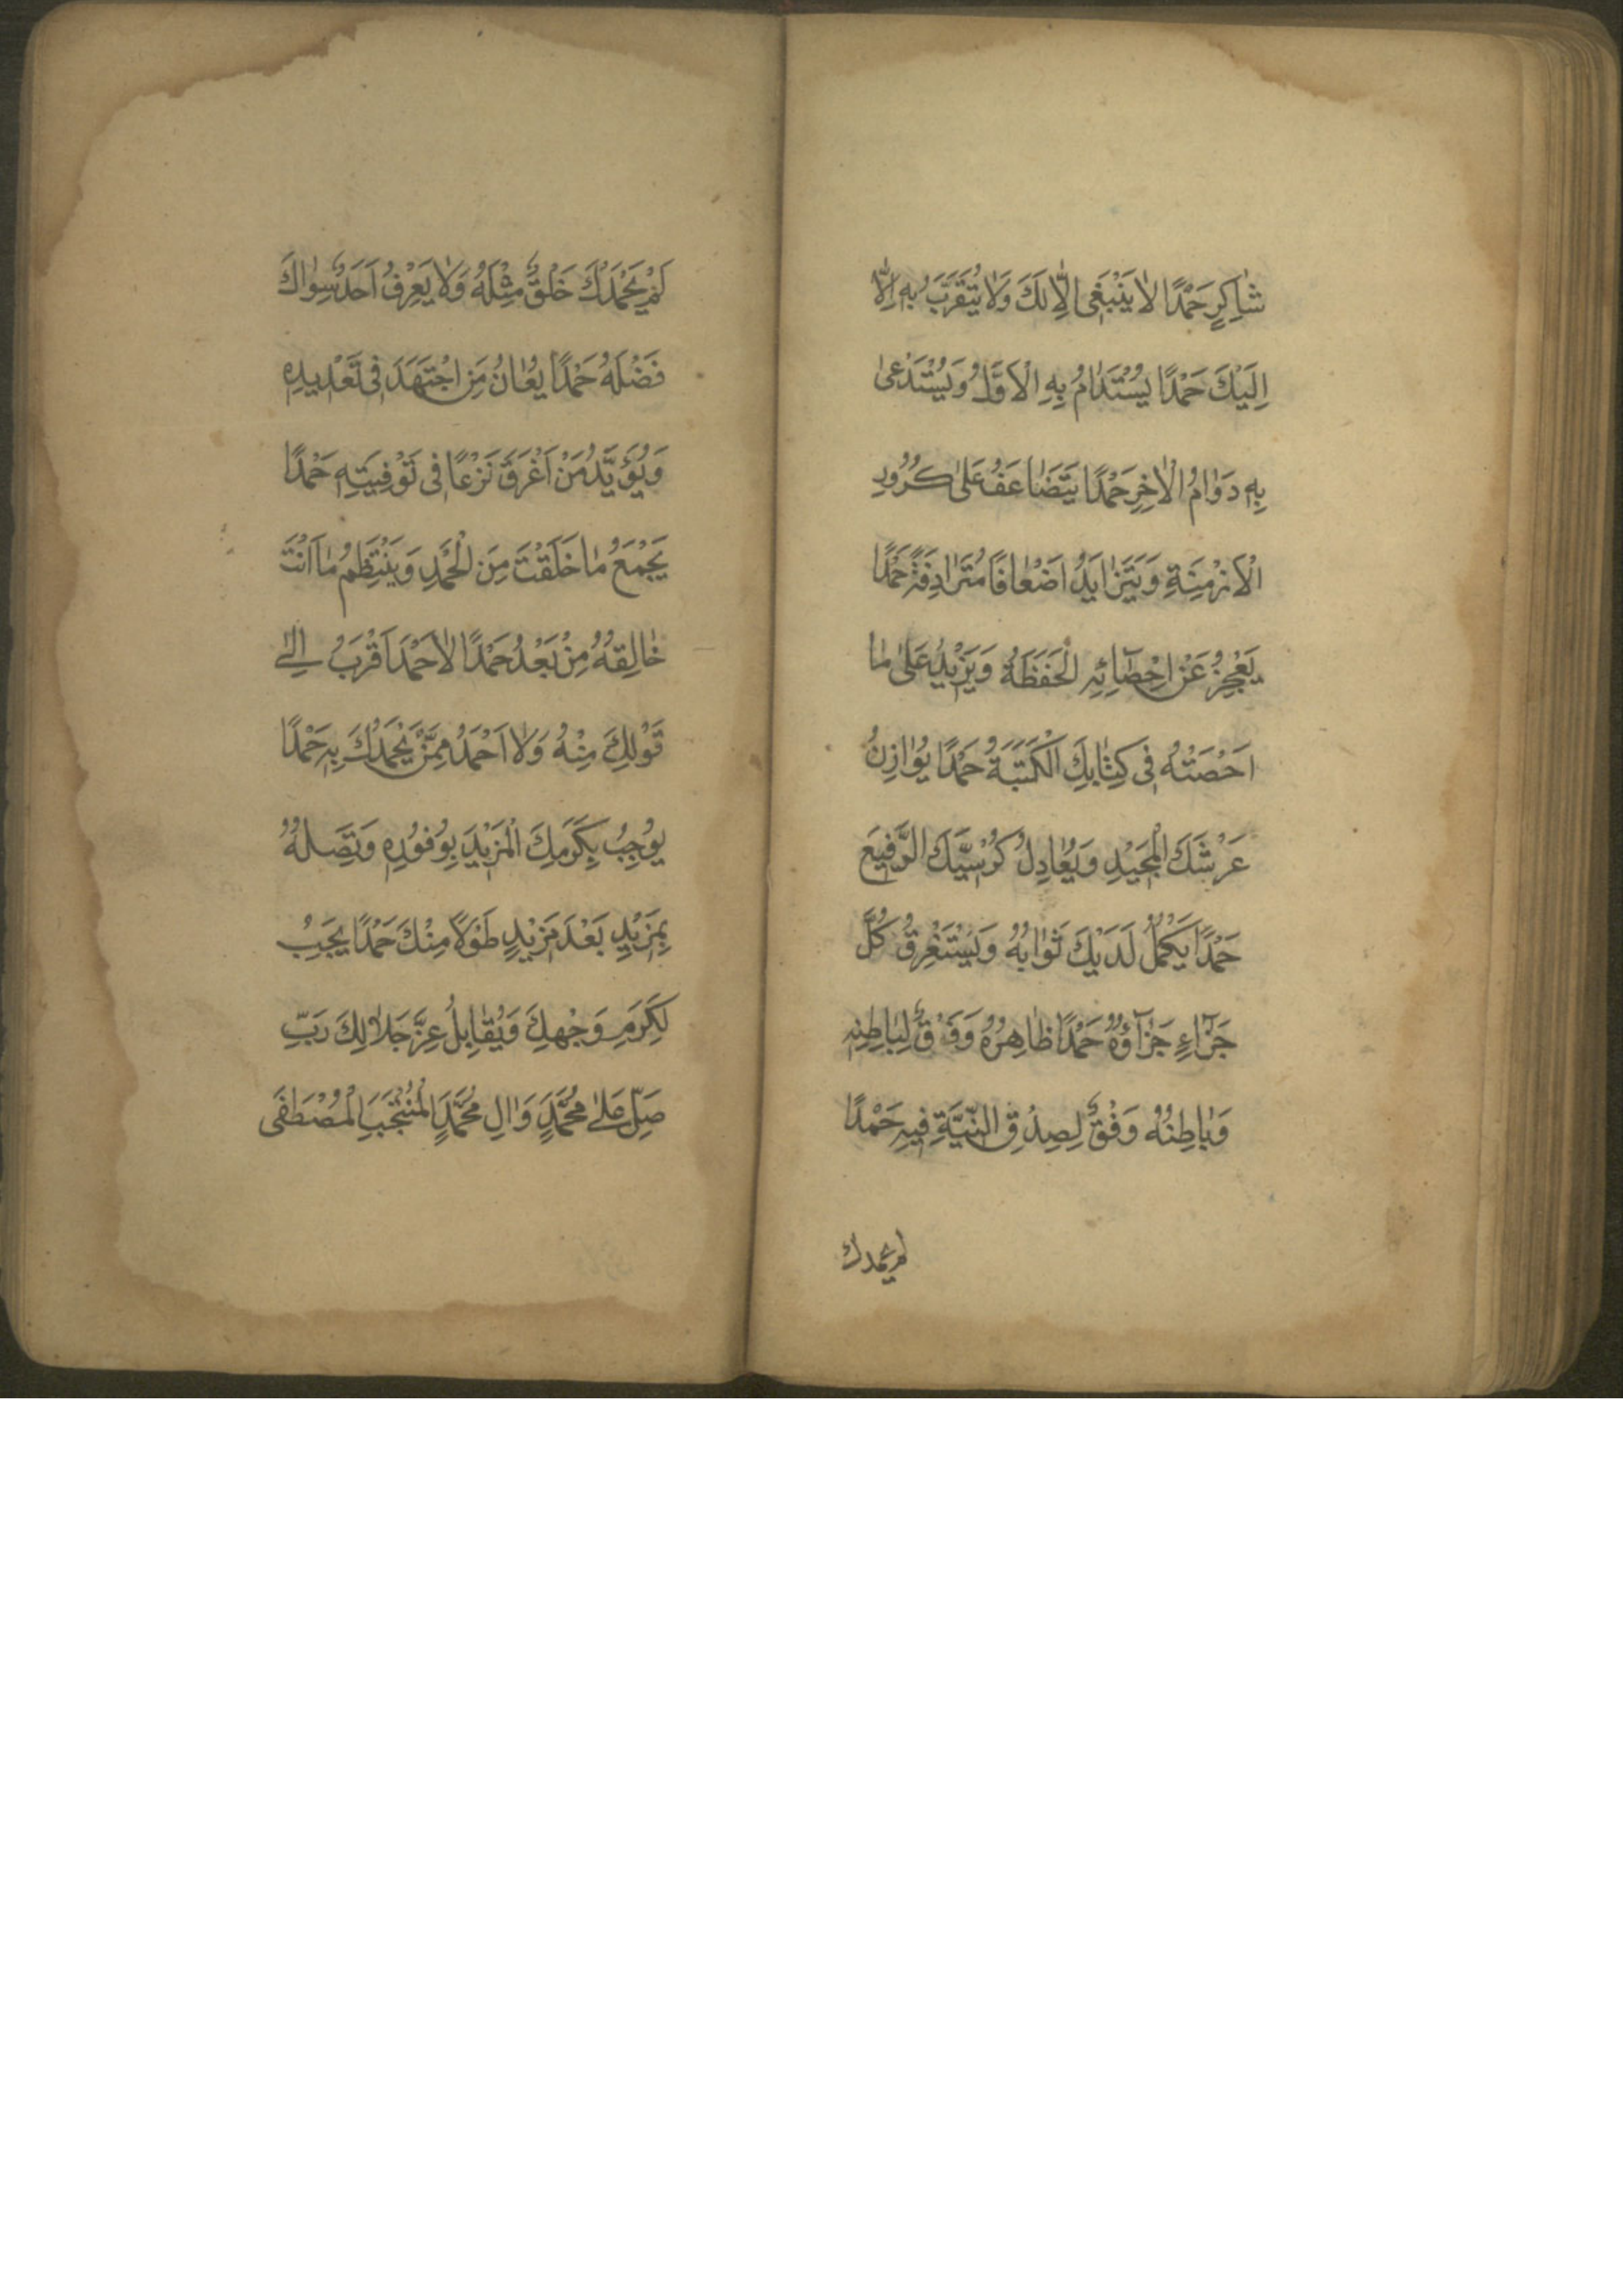 شَاكِرٍ حَمْدًا لَا يَنْبَغِى اِلَّا لَكَ وَلَا يُتَقَرَّبُ بِهِ اِلَّا
اِلَيْكَ حَمْدًا يُسْتَدَامُ بِهِ الْاَوَّلُ وَيُسْتَدْعىٰ
بِهِ دَوَامُ الْاٰخِرِ حَمْدًا يَتَضَاعَفُ عَلىٰ كُرُورِ
الْاَزْمِنَةِ وَيَتَزَايَدُ اَضْعَافًا مُتَرَادِفَةً حَمْدًا
يَعْجِزُ عَنْ اِحْصَآئِهِ الْحَفَظَةُ وَيَزِيْدُ عَلىٰ مَا
اَحْصَتْهُ فِى كِتَابِكَ الْكَتَبَةُ حَمْدًا يُوَازِنُ
عَرْشَكَ الْمَجِيْدِ وَيُعَادِلُ كُرْسِيَّكَ الرَّفِيْعَ
حَمْدًا يَكْمُلُ لَدَيْكَ ثَوَابُهُ وَيَسْتَغْرِقُ كُلَّ
جَزَآءٍ جَزَآؤُهُ حَمْدًا ظَاهِرُهُ وَفْقٌ لِبَاطِنِهِ
وَبَاطِنُهُ وَفْقٌ لِصِدْقِ النِّيَّةِ فِيهِ حَمْدًا
لم يحمدك
لَمْ يَحْمَدْكَ خَلْقٌ مِثْلَهُ وَلَا يَعْرِفُ اَحَدٌ سِوَاكَ
فَضْلَهُ حَمْدًا يُعَانُ مَنِ اجْتَهَدَ فِى تَعْدِيدِهِ
وَيُؤَيَّدُ مَنْ اَغْرَقَ نَزْعًا فِى تَوْفِيَتِهِ حَمْدًا
يَجْمَعُ مَا خَلَقْتَ مِنَ الْحَمْدِ وَيَنْتَظِمُ مَا اَنْتَ
خَالِقُهُ مِنْ بَعْدُ حَمْدًا لَا حَمْدَ اَقْرَبُ اِلىٰ
قَوْلِكَ مِنْهُ وَلَا اَحْمَدُ مِمَّنْ يَحْمَدُكَ بِهِ حَمْدًا
يُوْجِبُ بِكَرَمِكَ الْمَزِيْدَ بِوُفُوْرِهِ وَتَصِلُهُ
بِمَزِيْدٍ بَعْدَ مَزِيْدٍ طَوْلًا مِنْكَ حَمْدًا يَجِبُ
لِكَرَمِ وَجْهِكَ وَيُقَابِلُ عِزَّ جَلَالِكَ رَبِّ
صَلِّ عَلىٰ مُحَمَّدٍ وَاٰلِ مُحَمَّدٍ الْمُنْتَجَبِ الْمُصْطَفَى